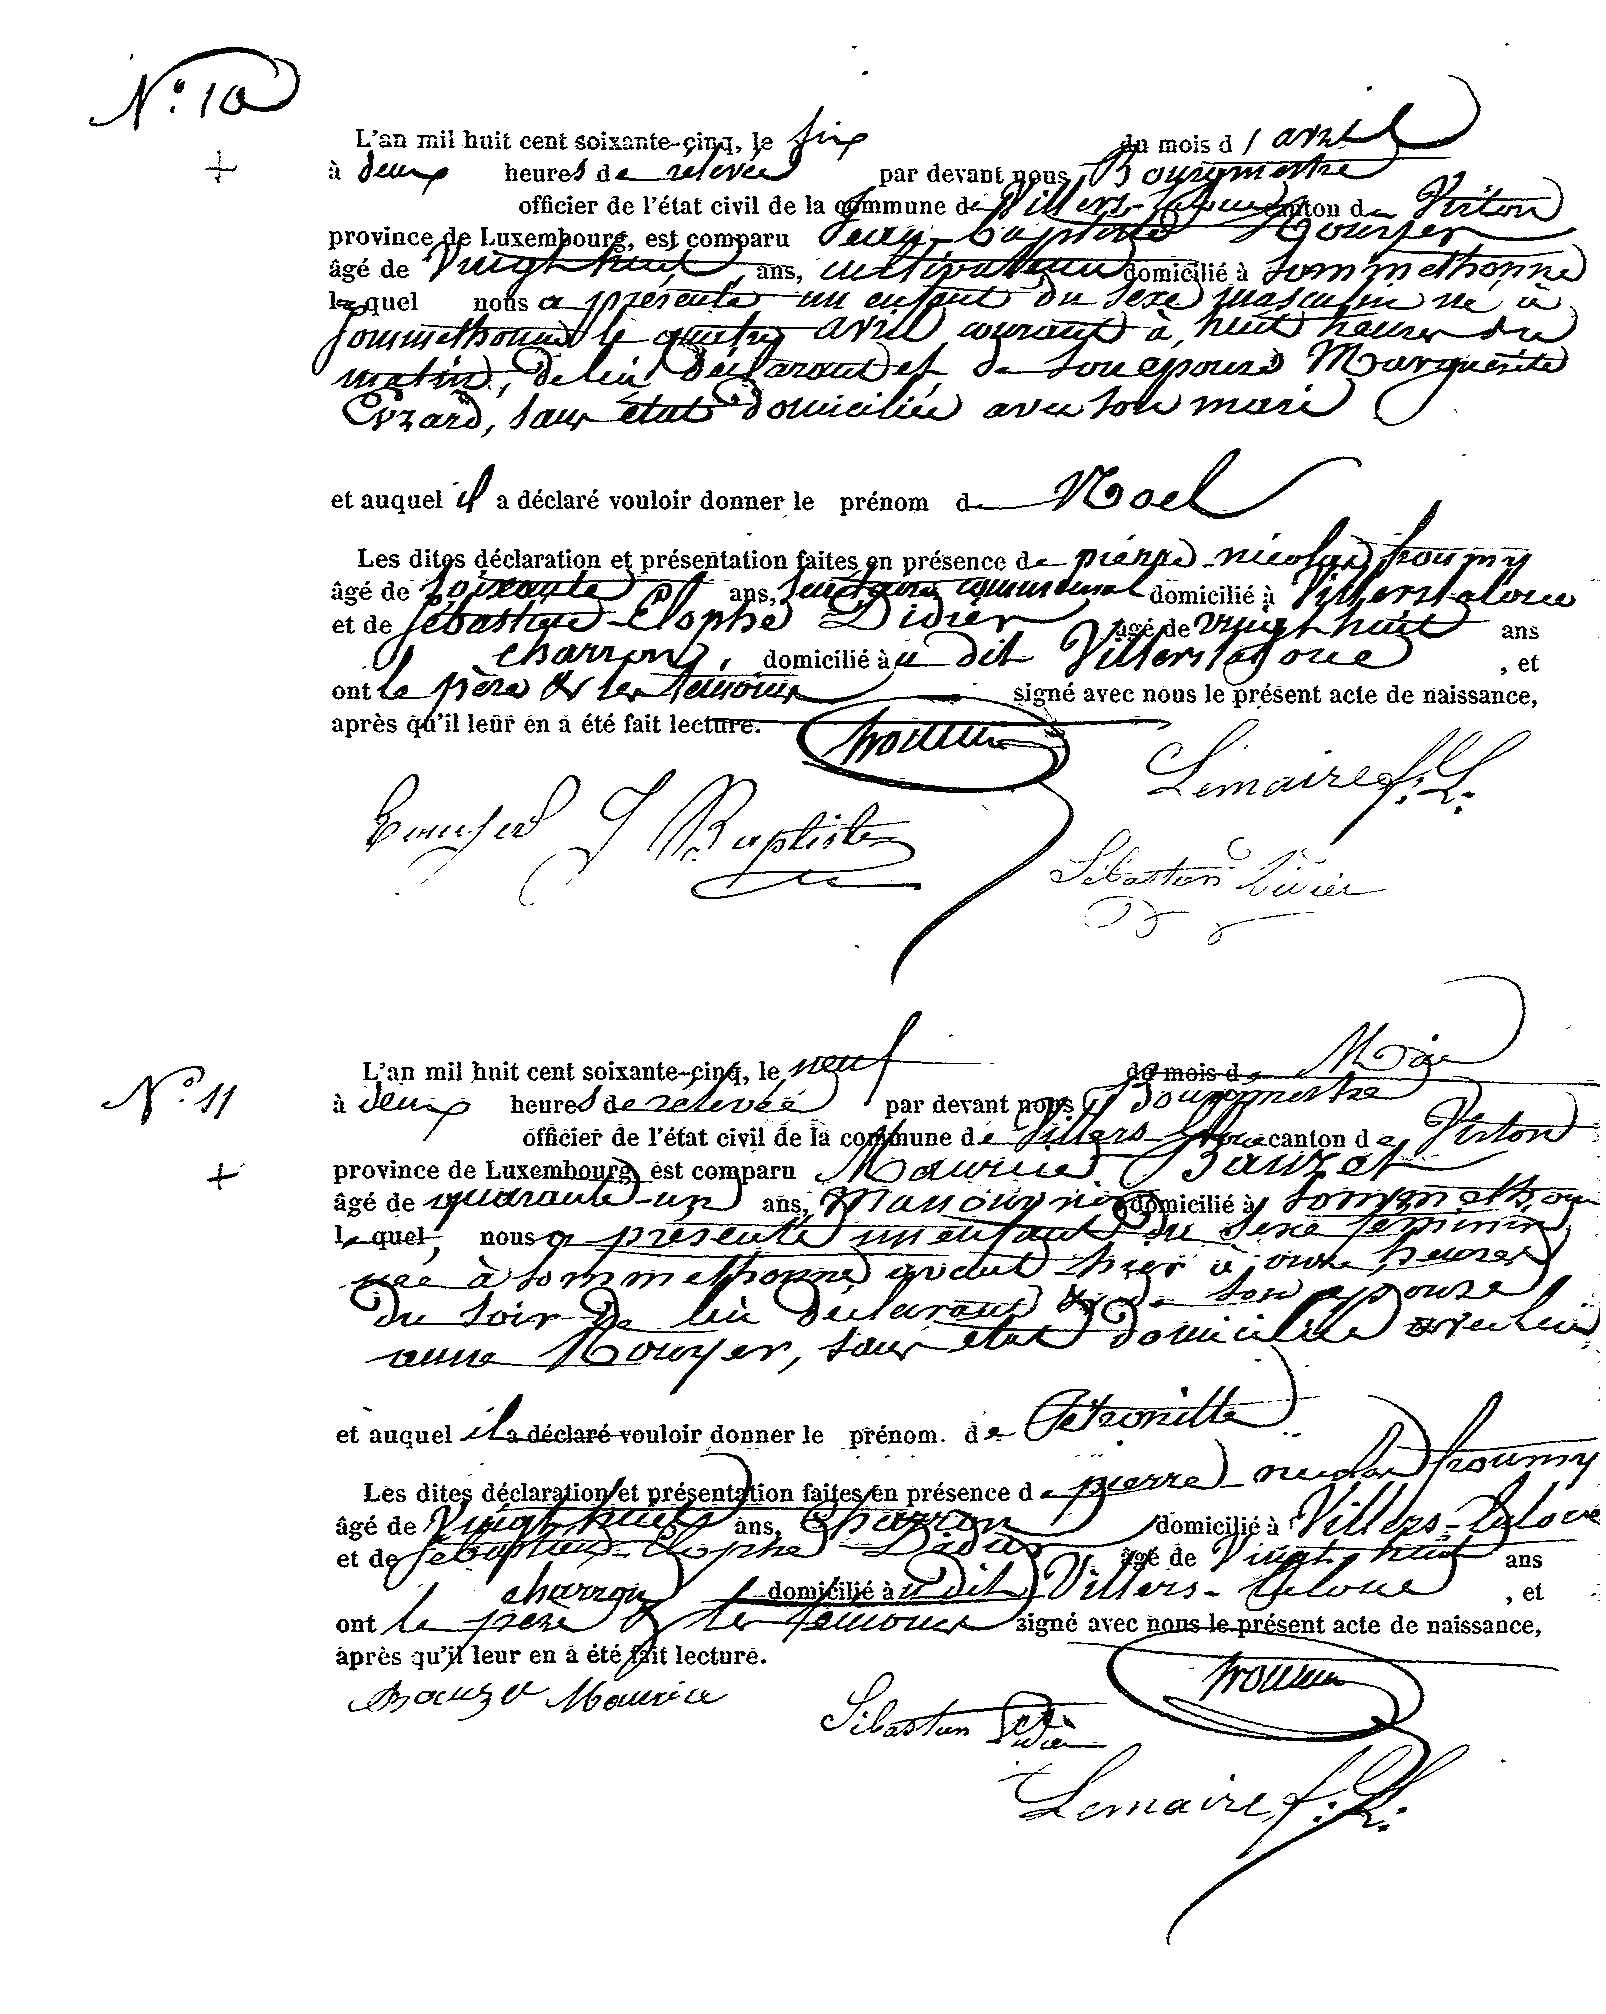 N.° 10
L'an mil huit cent soixante-cinq, le six du mois d'avril
à deux heures de relevée par devant nous Bourgmestre
officier de l'état civil de la commune de Villers-laloue canton de Virton
province de Luxembourg, est comparu Jean-baptiste Rouyer
âgé de Vingt huit ans, cultivateur domicilié à Sommethonne
lequel nous a présenté un enfant du sexe masculin né à
Sommethonne le quatre avril courant à huit heures du
matin, de lui déclarant et de son epouse Marguerite
Evrard, sans état domiciliée avec son mari
et auquel il a déclaré vouloir donner le prénom de Noel
Les dites déclaration et présentation faites en présence de pierre-nicolas
âgé de soixante ans, communal domicilié à Villerslaloue
et de Sébastien-Elophe Didier âgé de vingt huit ans
charron, domicilié à u dit Villerslaloue, et
ont le père & les temoins signé avec nous le présent acte de naissance,
après qu'il leur en a été fait lecture.
Lemaire f. L.
J Baptiste
Sébastien Didier
N.° 11
L'an mil huit cent soixante-cinq, le neuf du mois de Mai
à deux heures de relevée par devant nous Bourgmestre
officier de l'état civil de la commune de Villers-laloue canton de Virton
province de Luxembourg, est comparu Maurice Bauzot
âgé de quarante-un ans, Manouvrier domicilié à Sommethonne
lequel, nous a présenté un enfant du sexe feminin
née à Sommethonne avant-hier à onze heures
du soir de lui déclarant & de son epouse
anne Rouyer, sans état domiciliée avec lui
et auquel il a déclaré vouloir donner le prénom de Pétronille
Les dites déclaration et présentation faites en présence de pierre-nicolas
âgé de Vingt huit ans, Charron domicilié à Villers-laloue
et de Sébastien-Elophe Didier âgé de Vingt huit ans
charron domicilié à u dit Villers-laloue, et
ont le père & les temoins signé avec nous le présent acte de naissance,
après qu'il leur en a été fait lecture.
Maurice
Sébastien Didier
Lemaire f. L.